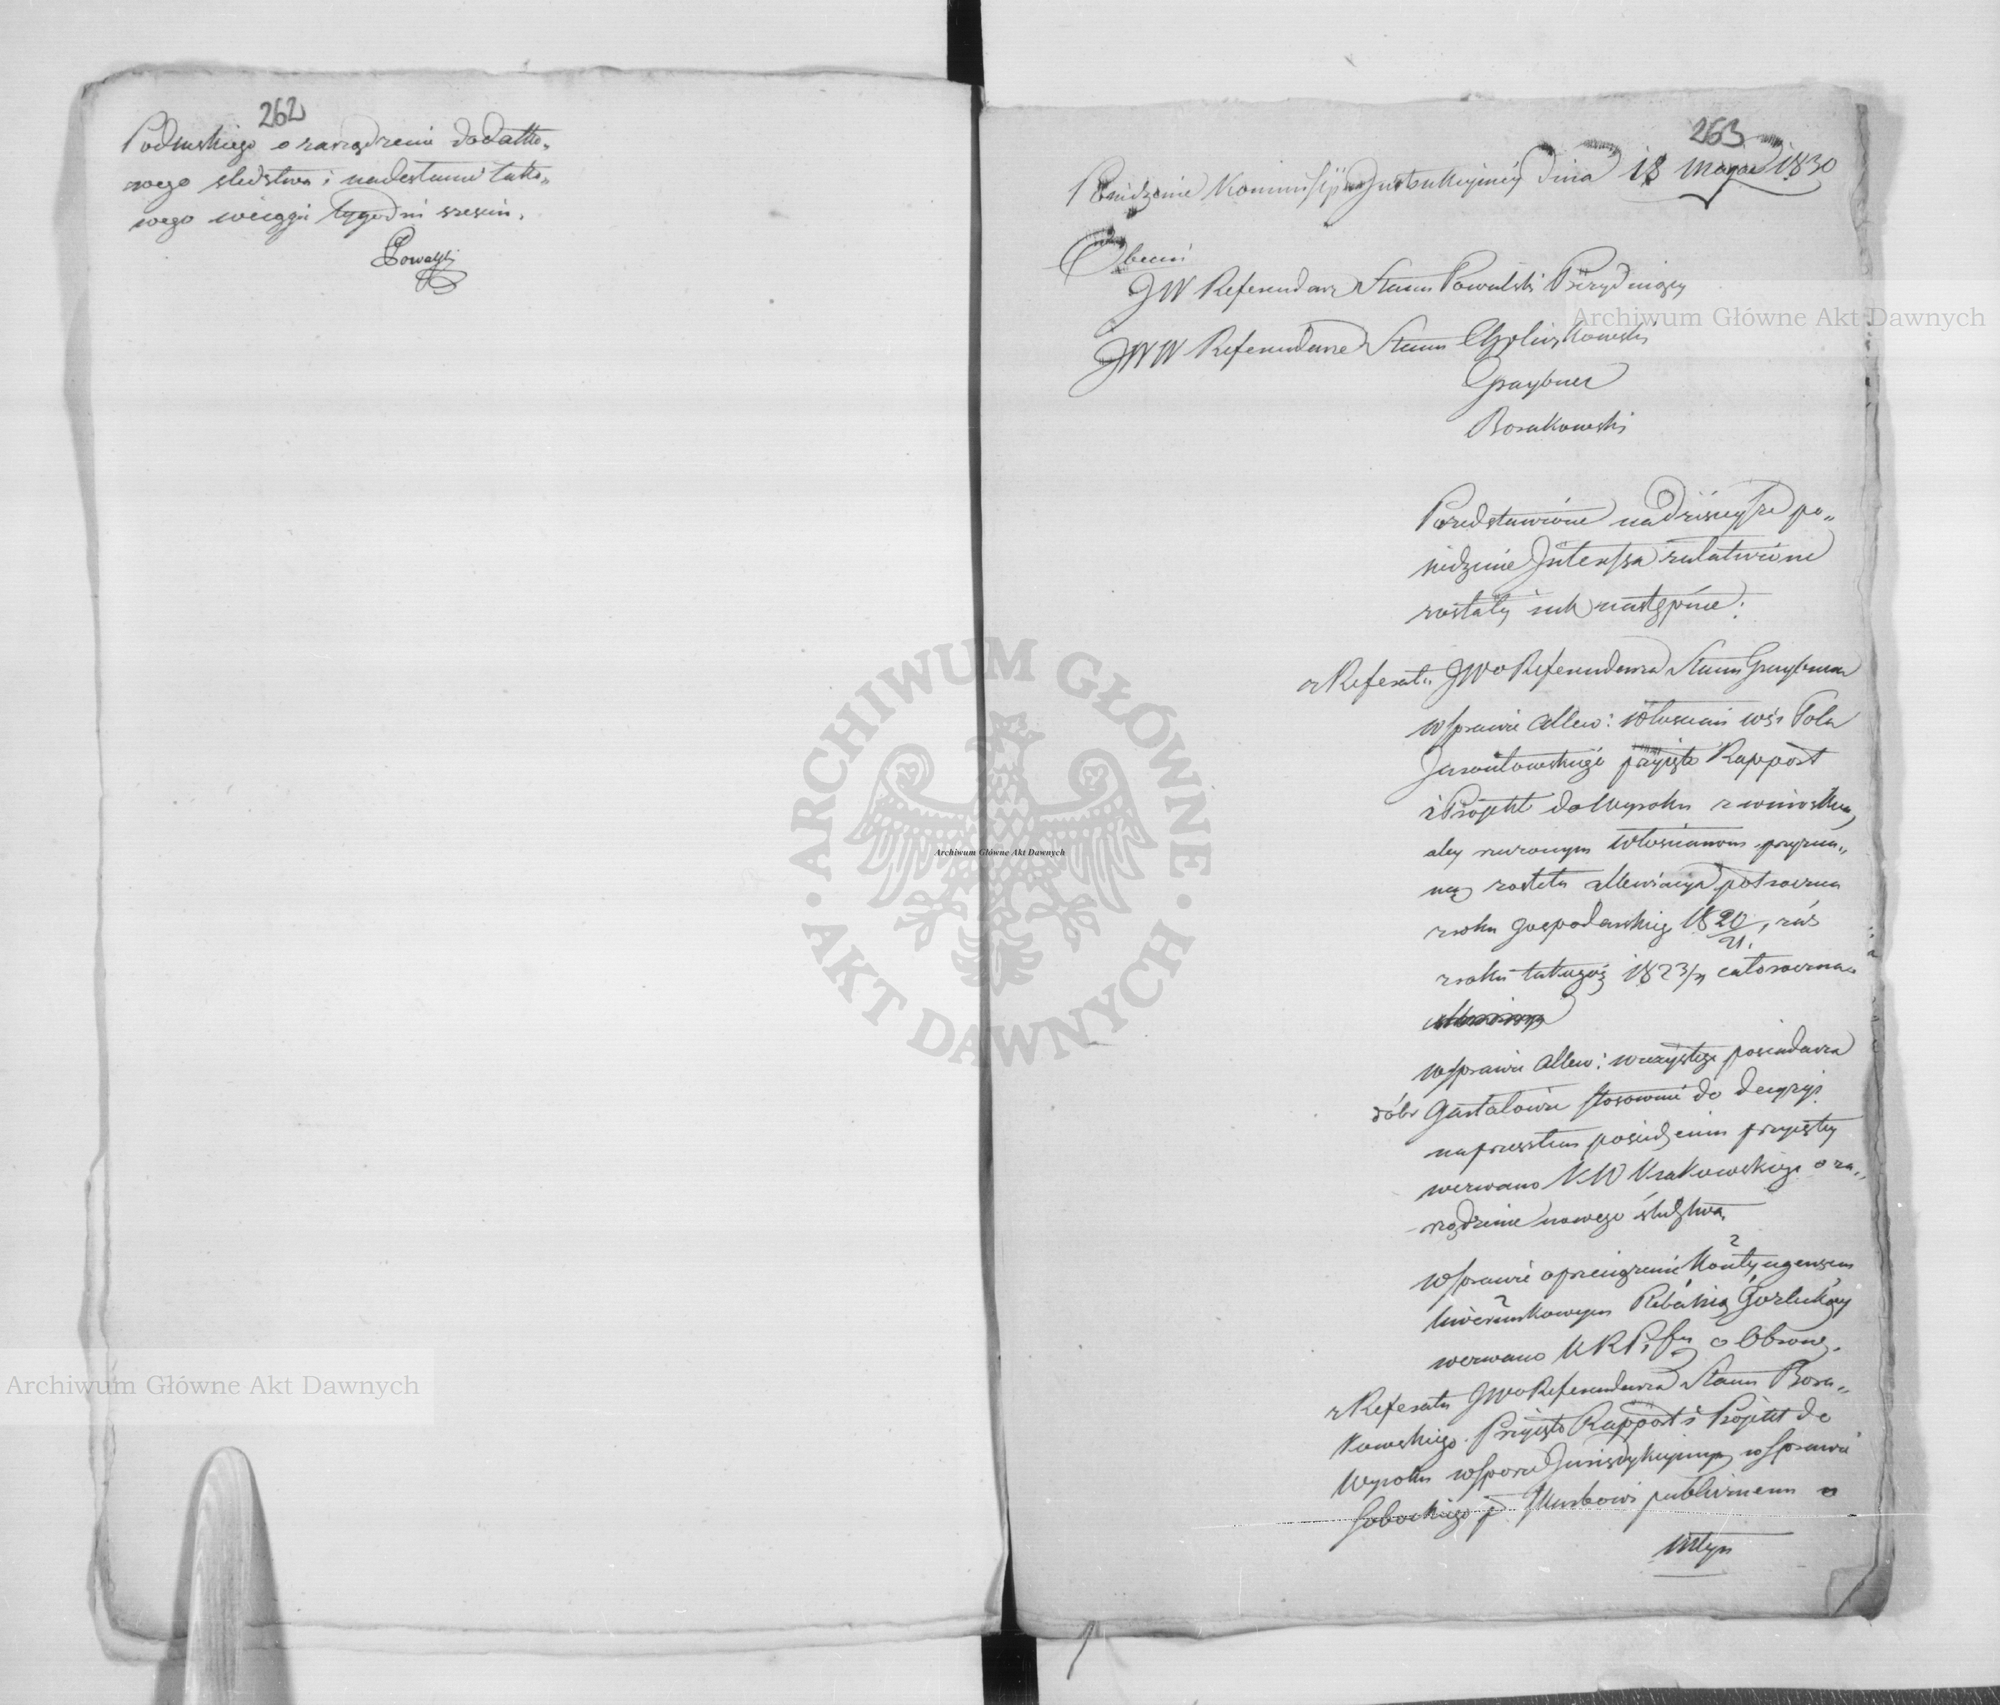 262
Podlaskiego o zarządzenie dodatko„
wego śledztwa i nadesłanie tako„
wego wciągu tygodni sześciu.
Kowalski
263
Posiedzenie Kommissyi Instrukcyiney Dnia 18 Maja 1830
Obecni
JW Referendarz Stanu Kowalski Prezyduiący
JWW Referendarze Stanu
Graybner
Borakowski
Przedstawione na dzisieysze po„
siedzenie Interessa załatwione
zostały jak następuie:
z Referatu JWo Referendarza Stanu Graybnera
w sprawie allew: włościan wsi Pola
przyięto Rapport
i Projekt do Wyroku z wnioskiem
aby rzeczonym włościanom przyzna„
ną została allewiacya półroczna
z roku gospodarskiego 1820/21, zaś
z roku takiegoż 1823/4 całoroczna.
w sprawie allew: wieczystego posiadacza
dóbr stosownie do decyzyi
na przeszłem posiedzeniu przyiętey
wezwano KW Krakowskiego o za„
rządzenie nowego śledztwa.
w sprawie o przeciążenie Kontyngensem
liwerunkowym
wezwano KRPiSu o Obronę.
z Referatu JWo Referendarza Stanu Bora„
kowskiego. Przyięto Rapport i Projekt do
Wyroku w sporze Jurisdykcyinym w sprawie
Sobockiego p. Skarbowi publicznemu o
Młyn
Archiwum Główne Akt Dawnych
Archiwum Główne Akt Dawnych
Archiwum Główne Akt Dawnych
ARCHIWUM GŁÓWNE · AKT DAWNYCH ·